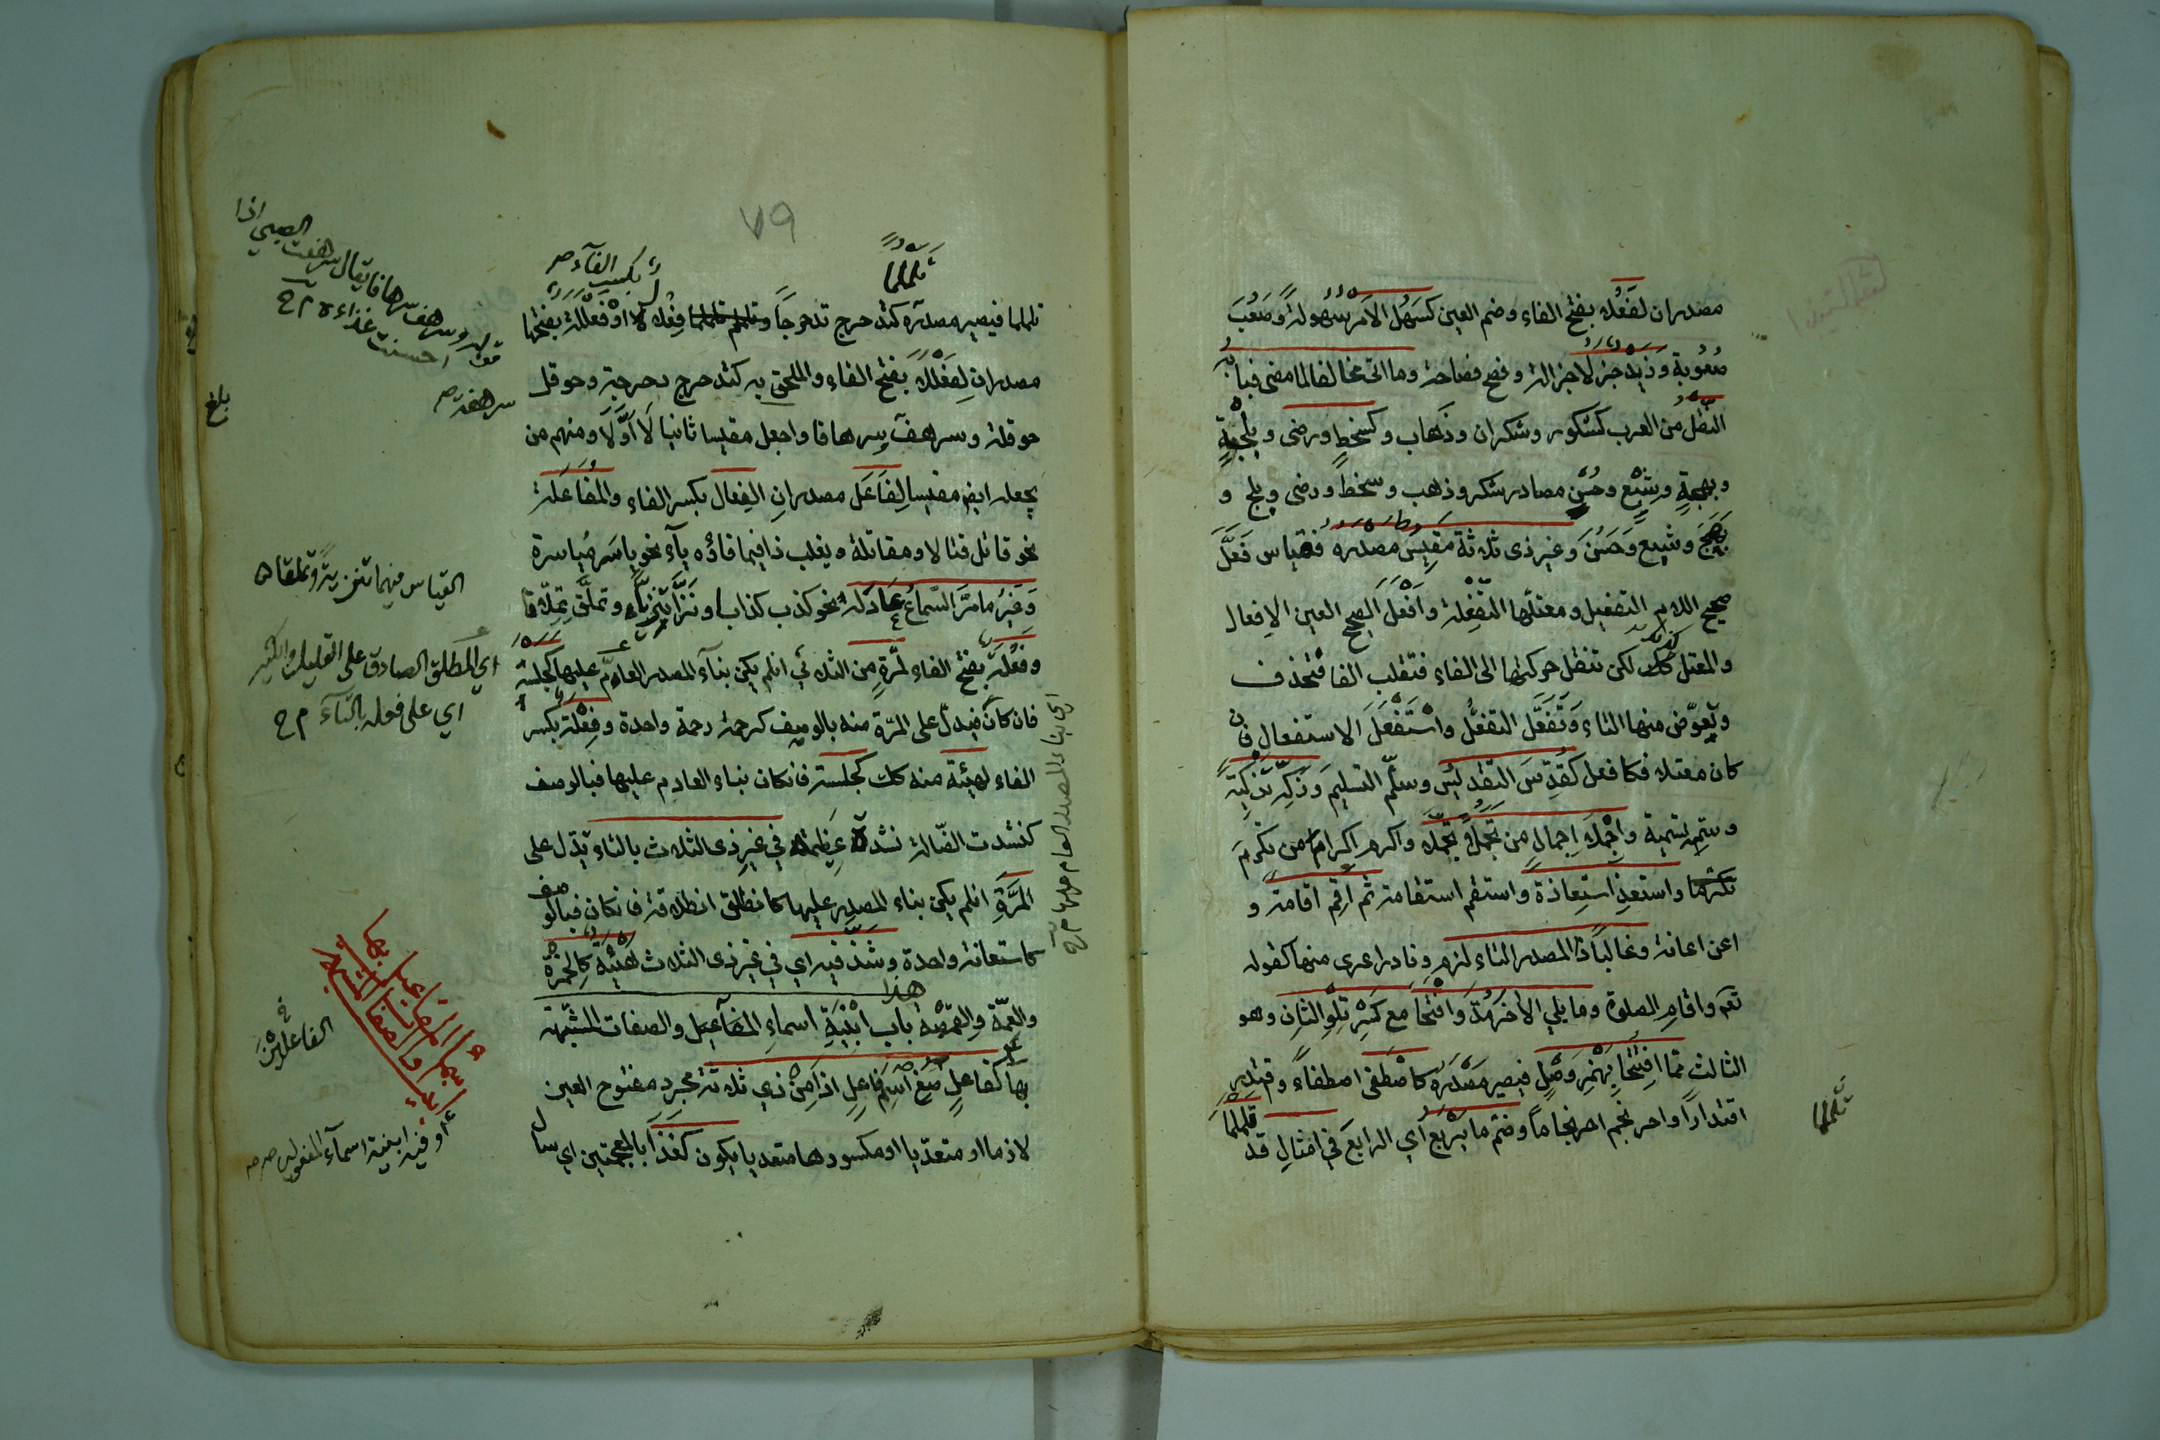 مصدران لفَعُلا بفتح الفاء وضم العين كسَهُل الاَمر سُهُولةً وصَعُبَ
صُعُوبة وزَيد جزُلا جزالة وفصح فصاحة وما اتى مخالفا لما مضى فبابُه
النقل من العرب كشكور وشكران وذهاب وكسخطٍ ورضى وبلجةٍ
وبهجةٍ وشبع وحُسْن مصادر شكر وذهب وسخط ورضى وبلج و
بَهَجَ وشبع وحَسُنَ وغير ذى ثلاثة مَقِيسُ مصدره فقياس فَعَّلَ
صحيح اللام التفعيل ومعتلّها التفعِلة واَفْعَلَ الصحيح العين الاِفعال
والمعتل كذلك لكن تنقل حركتها الى الفاء فتقلب الفا فتحذف
ويعوّض منها التاء وتَفَعَّل التفعُّل واسْتَفْعَلَ الاستفعال فان
كان معتلا فكا فعل كقُدِّسَ التقديسُ وسلّم التسليمَ وزكِّه تزكيةً
وسمّ تسمية واَجْمِلا اِجمالَ من تجمُّلا تجمّلا واكرم اكرام من تكرّمَ
تكرّما واستعذ استعاذة واستقم استقامة ثم اَقِم اقامة و
اعن اعانة وغالبًا ذا المصدر التاء لزم ونادرا عرى منها كقوله
تعم واقام الصلوة وما يلي الآخر مُدَّ وافْتَحَا مع كَسْرِ تِلْوِ الثانِ وهو
الثالث ممّا افتُتِحا بهمْزِ وَصْلٍ فيصير مَصْدَرَه كاصْطَفى اصطفاءً واقتدر
اقتدارًا واحرنجم احرنجاماً وضمّ ما يَرْبَعُ اي الرابعَ في امثالِ قد تلملما
تَلَمْلُما
٧٩
تَلَمْلُمًا
بكسر الفآء صح
تلملما فيصير مصدره كتدحرج تدحرجاً وتلملم تلملما فِعْلالٌ اوفَعْلَلةٌ بفتحها
مصدران لِفَعْلَلَ بفتح الفاء والملحق به كتدحرج دحرجة وحوقل
حوقلة وسرهف سرهافا واجعل مقيسا ثانيا لَا اَوَّلَا ومنهم من
يجعله ايض مقيسا لِفَاعَلَ مصدرانِ الفِعال بكسر الفاء والمُفَاعَلة
نحو قاتل قتالا ومقاتلة ويغلب ذا فيما فاؤه ياء نحو ياسَر مُياسرة
وغيرُ ما مرّ السّماعُ عَادَلَه نحو كذب كذابا ونَزَّى تنزيًّا وتملّق تِمِلّاقا
وفَعْلَةٌ بفتح الفاء لمرّةٍ من الثلاثي ان لم يكن بناءُ المصدر العام عليها كجلسة
فان كان فيدلّ على المرّة منه بالوصف كرحمة رحمة واحدة وفِعْلَة بكسر
الفاء لهيئة منه كك كجلسة فان كان بناء العام عليها فبالوصف
كنشدت الضّالة نشدة عظيمة في غير ذى الثلاث بالتاء يدل على
المرَّةِ ان لم يكن بناء المصدر عليها كانطلق انطلاقة فان كان فبالوصف
كاستعانة واحدة وشذّ فيه اي في غير ذى الثلاث هيئة كالخمرة
والعِمّة والقمصة هذا باب ابنيةِ اسماءِ الفاعل والصفات المشبّهة
بها كفاعلٍ صُغ اسْمَ فاعلٍ اذا مِنْ ذي ثلاثة مجرد مفتوح العين
لازما او متعدّيا او مكسورها متعديا يكون كغذا بالمعجمتين اي سال
قولك وسرهف سرهافا يقال سرهفت الصبي اذا
احسنت غذاءه م ح
سرهفة صح
بلغ
القياس فيهما تنزيةً وتملقا ه
اي المطلق الصادق على القليل والكثير
اي على فعلة بالتاء م ح
اي بناء المصدر العام عليها م ح
الفاعلين
او فيه ابنية اسماء المفعولين صح صح